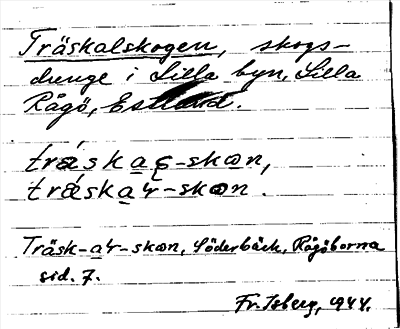 Träskalskogen, skogs-
dunge i Lilla byn, Lilla
Rågö, Estland.
träskaɽ-skωn,
träskar-skωn.
Träsk-ar-skωn, Söderbäck, Rågöborna
sid. 7.
Fr. Isberg, 1944.